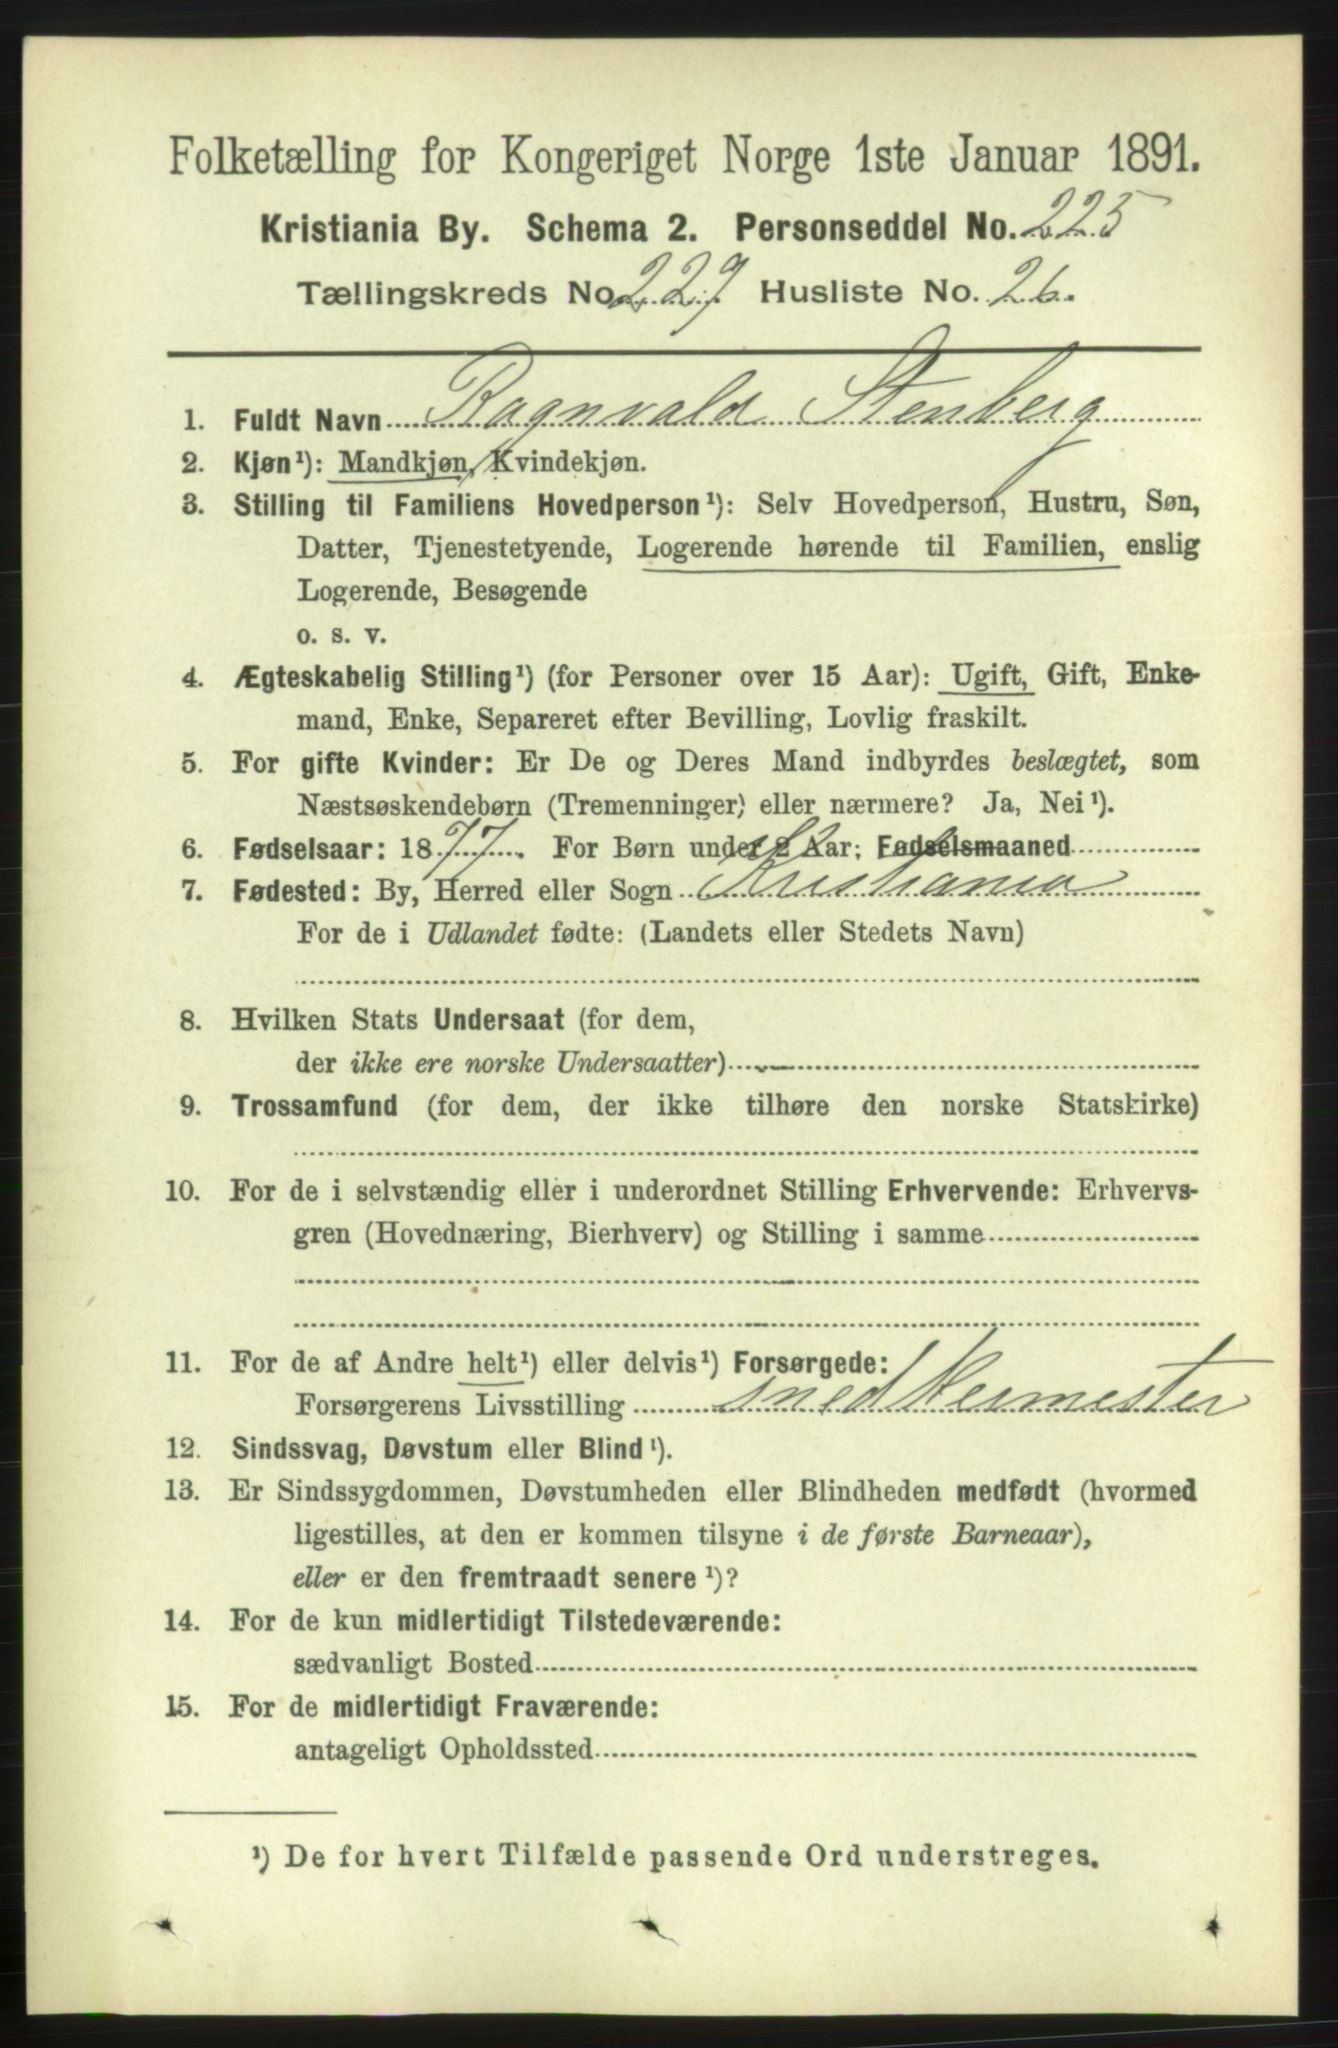 Folketælling for Kongeriget Norge 1ste Januar 1891.
Kristiania By. Schema 2. Personseddel No. 225
Tællingskreds No. 227 Husliste No. 26.
1. Fuldt Navn Ragnvald Stenberg
2. Kjøn¹): Mandkjøn, Kvindekjøn.
3. Stilling til Familiens Hovedperson¹): Selv Hovedperson, Hustru, Søn,
Datter, Tjenestetyende, Logerende hørende til Familien, enslig
Logerende, Besøgende
o. s. v.
4. Ægteskabelig Stilling¹) (for Personer over 15 Aar): Ugift, Gift, Enke-
mand, Enke, Separeret efter Bevilling, Lovlig fraskilt.
5. For gifte Kvinder: Er De og Deres Mand indbyrdes beslægtet, som
Næstsøskendebørn (Tremenninger) eller nærmere? Ja, Nei¹).
6. Fødselsaar: 1877. For Børn under 2 Aar: Fødselsmaaned
7. Fødested: By, Herred eller Sogn Kristiania
For de i Udlandet fødte: (Landets eller Stedets Navn)
8. Hvilken Stats Undersaat (for dem,
der ikke ere norske Undersaatter)
9. Trossamfund (for dem, der ikke tilhøre den norske Statskirke)
10. For de i selvstændig eller i underordnet Stilling Erhvervende: Erhvervs-
gren (Hovednæring, Bierhverv) og Stilling i samme
11. For de af Andre helt¹) eller delvis¹) Forsørgede:
Forsørgerens Livsstilling snedkermester
12. Sindssvag, Døvstum eller Blind¹).
13. Er Sindssygdommen, Døvstumheden eller Blindheden medfødt (hvormed
ligestilles, at den er kommen tilsyne i de første Barneaar),
eller er den fremtraadt senere¹)?
14. For de kun midlertidigt Tilstedeværende:
sædvanligt Bosted
15. For de midlertidigt Fraværende:
antageligt Opholdssted
¹) De for hvert Tilfælde passende Ord understreges.